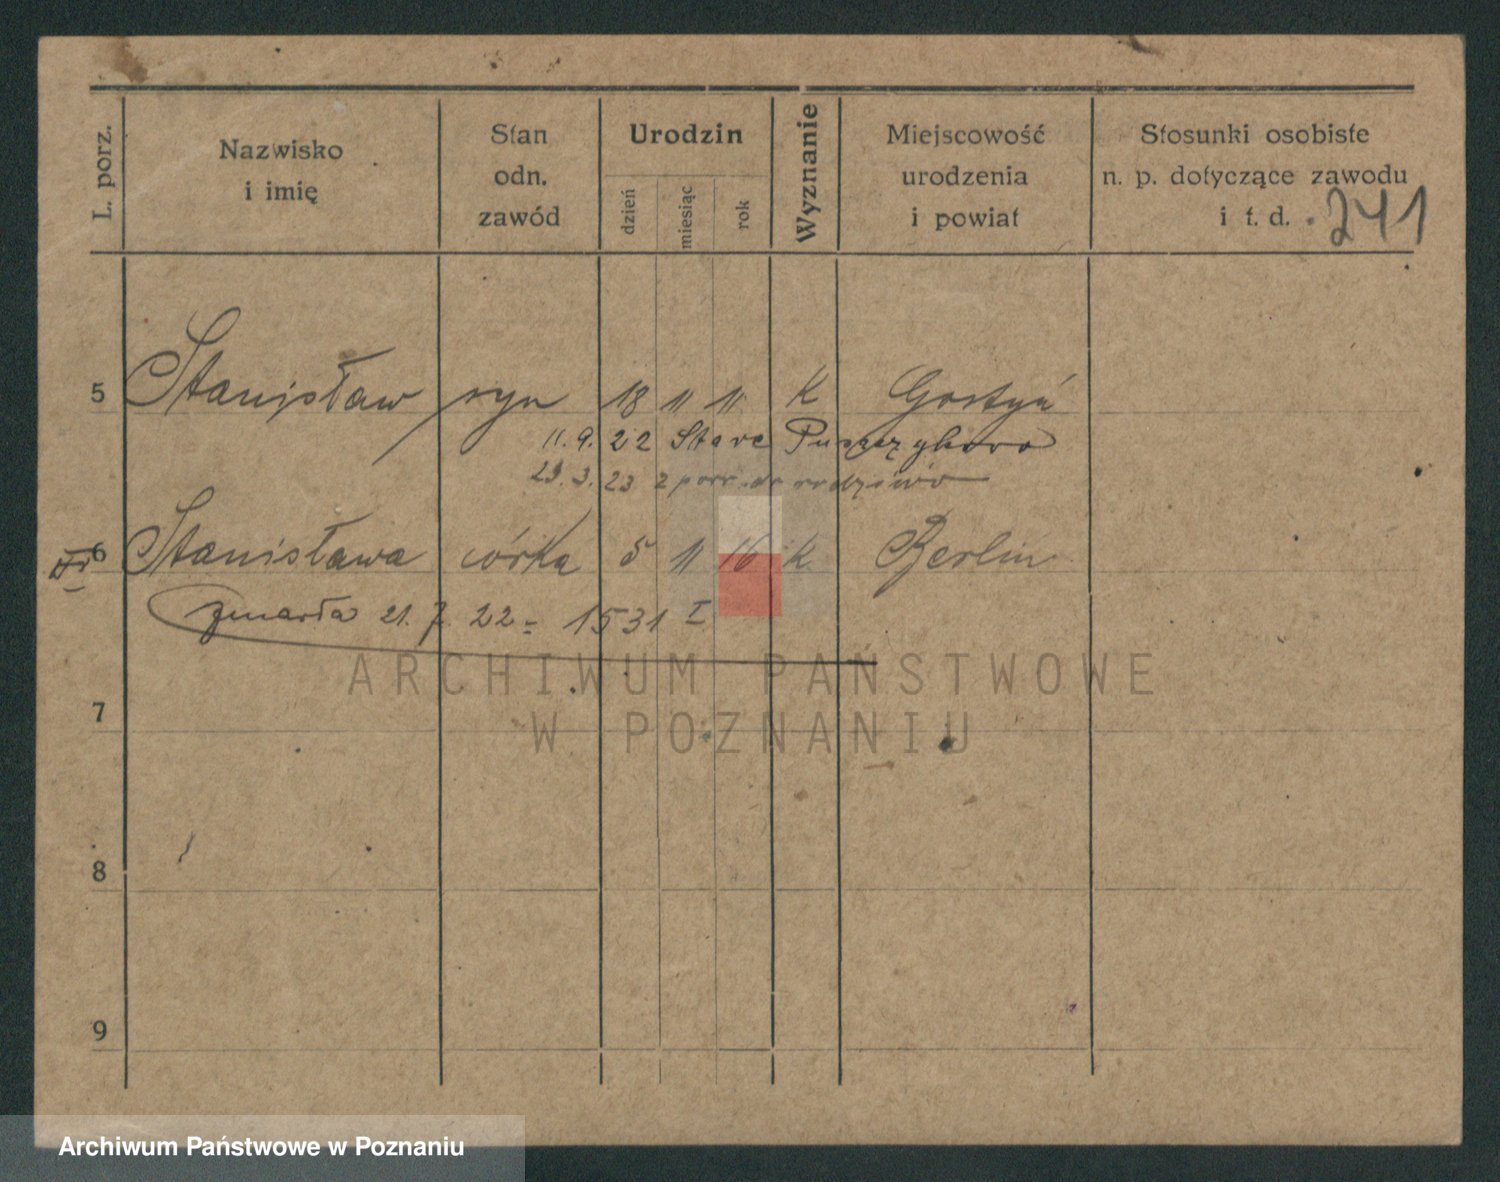 L. porz.
Nazwisko
i imię
Stan
odn.
zawód
Urodzin
dzień
miesiąc
rok
Wyznanie
Miejscowość
urodzenia
i powiat
Stosunki osobiste
n. p. dotyczące zawodu
i t. d.
241
5 Stanisław syn 18 11 11 K Gostyń
11. 9. 22 Stare Puszczykowo
29. 3. 23 z pow. do rodziców
6 Stanisława córka 5 11 16 K. Berlin
zmarła 21. 7. 22 = 1531 I
ARCHIWUM PAŃSTWOWE
W POZNANIU
7
8
9
Archiwum Państwowe w Poznaniu